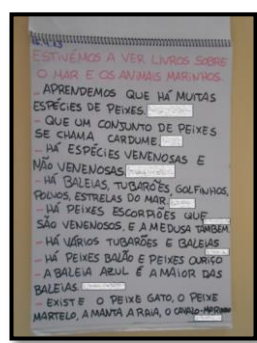 ESTIVÉMOS A VER LIVROS SOBRE
O MAR E OS ANIMAIS MARINHOS.
- APRENDEMOS QUE HÁ MUITAS
ESPÉCIES DE PEIXES.
- QUE UM CONJUNTO DE PEIXES
SE CHAMA CARDUME.
- HÁ ESPÉCIES VENENOSAS E
NÃO VENENOSAS.
- HÁ BALEIAS, TUBARÕES, GOLFINHOS,
POLVOS, ESTRELAS DO MAR.
- HÁ PEIXES ESCORPIÕES QUE
SÃO VENENOSOS, E A MEDUSA TAMBÉM.
- HÁ VÁRIOS TUBARÕES E BALEIAS
- HÁ PEIXES BALÃO E PEIXES OURIÇO
- A BALEIA AZUL É A MAIOR DAS
BALEIAS.
- EXISTE O PEIXE GATO, O PEIXE
MARTELO, A MANTA A RAIA, O CAVALO-MARINHO